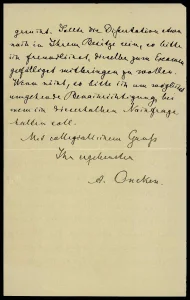 gereicht. Sollte die Dissertation etwa
noch in Ihrem Besitze sein, so bitte
ich freundlichst, dieselbe zum Examen
gefälligst mitbringen zu wollen.
Wenn nicht, so bitte ich um möglichst
umgehende Benachrichtigung, bei
wem ich dieserhalb Nachfrage
halten soll.
Mit collegialischem Gruß
Ihr ergebenster
A. Oncken.